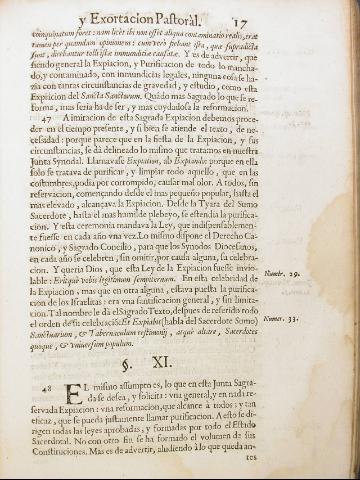 y Exortacion Pastoràl. 17
coinquinatum foret: nam licèt ibi non esset aliqua contaminatio realis, erat
tamen per quandam opinionem: cum verò fiebant ista, quæ supradicta
sunt, dicebantur tolli istæ immunditiæ causatæ. Y es de advertir, que
siendo general la Expiacion, y Purificacion de todo lo mancha-
do, y contaminado, con inmundicias legales, ninguna cosa se ha-
zia con tantas circunstancias de gravedad, y estudio, como esta
Expiacion del Sancta Sanctorum. Quãdo mas Sagrado lo que se re-
forma, mas seria ha de ser, y mas cuydadosa la reformacion.
47 A imitacion de esta Sagrada Expiacion debemos proce-
der en el tiempo presente, y si bien se atiende el texto, de ne-
cessidad: porque parece que en la fiesta de la Expiacion, y sus
circunstancias, se dà delineado lo mismo que tratamos en nuestra
Junta Synodal. Llamavase Expiation, ab Expiando: porque en ella
solo se tratava de purificar, y limpiar todo aquello, que en las
costumbres, podia por corrompido, causar mal olor. A todos, sin
reservacion, començando desde el mas pequeño popular, hasta el
mas elevado, alcançava la Expiacion. Desde la Tyara del Sumo
Sacerdote, hasta el mas humilde plebeyo, se estendia la purifica-
cion. Y esta ceremonia mandava la Ley, que indispensablemen-
te fuesse en cada año vna vez. Lo mismo dispone el Derecho Ca-
nonico, y Sagrado Concilio, para que los Synodos Diocesinos,
en cada año se celebren, sin omitir, por causa alguna, su celebra-
cion. Y queria Dios, que esta Ley de la Expiacion fuesse invio-
lable: Eritque vobis legitimum sempiternum. En esta celebridad de
la Expiacion, mas que en otra alguna, estava puesta la purifica-
cion de los Israelitas: era vna santificacion general, y sin limita-
cion. Tal nombre le dà el Sagrado Texto, despues de referido todo
el orden de su celebraciõ: Et Expiabit (habla del Sacerdote Sumo)
Sanctuarium, & Tabernaculum testimonij, atque altare, Sacerdotes
quoque, & Vniversum populum.
Numer. 29.
Numer. 33.
§. XI.
48 EL mismo assumpto es, lo que en esta Junta Sagra-
da se desea, y solicita: vna general, y en nada re-
servada Expiacion: vna reformacion, que alcance à todos; y tan
eficaz, que se pueda justamente llamar purificacion. A esto se di-
rigen todas las leyes aprobadas, y formadas por todo el Estado
Sacerdotal. No con otro fin se ha formado el volumen de sus
Constituciones. Mas es de advertir, aludiendo à lo que quedan-
tes